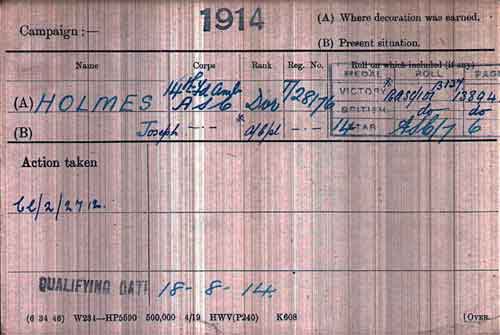 1914
Campaign :—
(A) Where decoration was earned.
(B) Present situation.
Name Corps Rank Reg. No. Roll on which included (if any)
MEDAL ROLL PAGE
14th Fd Amb
(A) HOLMES A.S.C Dvr T/28176 VICTORY * 13894
BRITISH do do
(B) Joseph — " — * a/Cpl — " — 14 STAR ASC/7 6
Action taken
QUALIFYING DATE 18-8-14.
(6 34 46) W234—HP5590 500,000 4/19 HWV(P240) K608
[OVER.